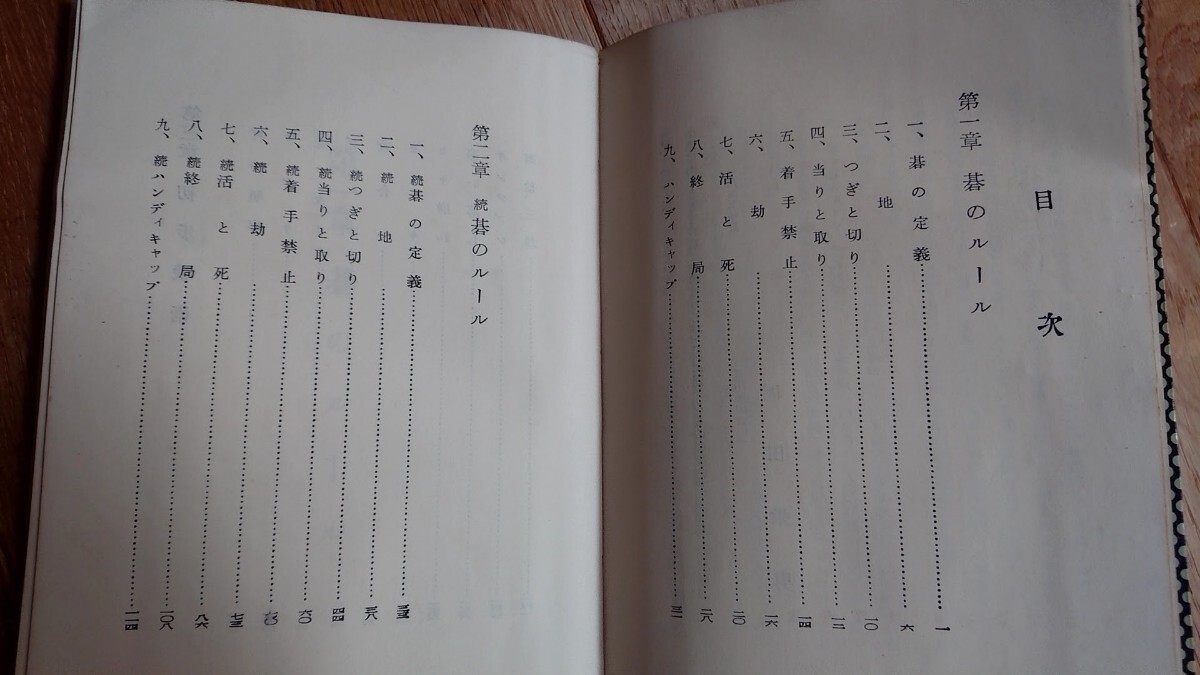 目次
第一章 碁のルール
一、碁の定義……一
二、地……六
三、つぎと切り……一〇
四、当りと取り……一二
五、着手禁止……一四
六、劫……一六
七、活と死……二〇
八、終局……二八
九、ハンディキャップ……三一
第二章 続碁のルール
一、続碁の定義……
二、続地……三八
三、続つぎと切り……四四
四、続当りと取り……六〇
五、続着手禁止……
六、続劫……七三
七、続活と死……八六
八、続終局……一〇八
九、続ハンディキャップ……一一四